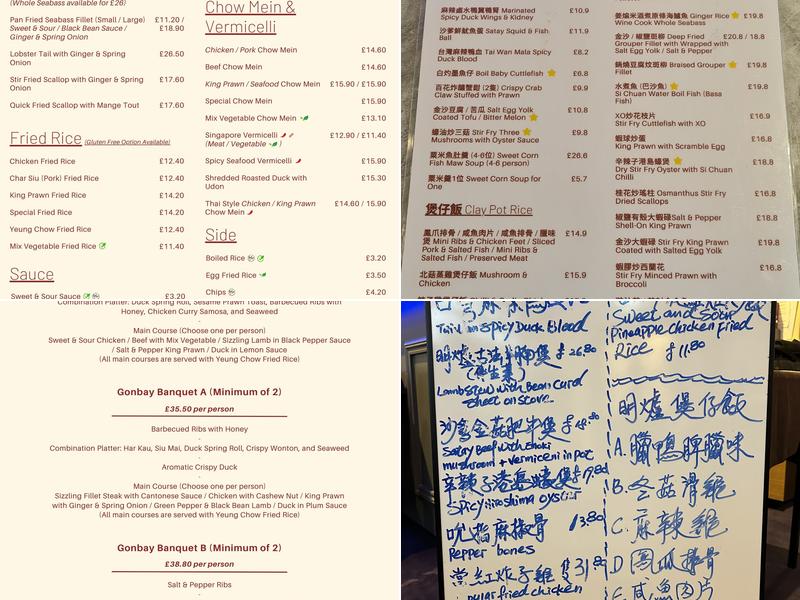 (Whole Seabass available for £26)
Pan Fried Seabass Fillet (Small / Large) £11.20 /
Sweet & Sour / Black Bean Sauce / £18.90
Ginger & Spring Onion
Lobster Tail with Ginger & Spring £26.50
Onion
Stir Fried Scallop with Ginger & Spring £17.60
Onion
Quick Fried Scallop with Mange Tout £17.60
Fried Rice (Gluten Free Option Available)
Chicken Fried Rice £12.40
Char Siu (Pork) Fried Rice £12.40
King Prawn Fried Rice £14.20
Special Fried Rice £14.20
Yeung Chow Fried Rice £12.40
Mix Vegetable Fried Rice £11.40
Sauce
Sweet & Sour Sauce £3.20
Chow Mein &
Vermicelli
Chicken / Pork Chow Mein £14.60
Beef Chow Mein £14.60
King Prawn / Seafood Chow Mein £15.90 / £15.90
Special Chow Mein £15.90
Mix Vegetable Chow Mein £13.10
Singapore Vermicelli £12.90 / £11.40
(Meat / Vegetable)
Spicy Seafood Vermicelli £15.90
Shredded Roasted Duck with £15.30
Udon
Thai Style Chicken / King Prawn £14.60 / 15.90
Chow Mein
Side
Boiled Rice £3.20
Egg Fried Rice £3.50
Chips £4.20
麻辣鹵水鴨翼鴨腎 Marinated £10.9
Spicy Duck Wings & Kidney
沙爹鮮魷魚蛋 Satay Squid & Fish £11.9
Ball
台灣麻辣鴨血 Tai Wan Mala Spicy £8.2
Duck Blood
白灼墨魚仔 Boil Baby Cuttlefish £6.8
百花炸釀蟹鉗 (2隻) Crispy Crab £9.9
Claw Stuffed with Prawn
金沙豆腐 / 苦瓜 Salt Egg Yolk £10.8
Coated Tofu / Bitter Melon
蠔油炒三菇 Stir Fry Three £9.8
Mushrooms with Oyster Sauce
粟米魚肚羹 (4-6位) Sweet Corn £26.6
Fish Maw Soup (4-6 person)
粟米羹1位 Sweet Corn Soup for £5.7
One
煲仔飯 Clay Pot Rice
鳳爪排骨 / 咸魚肉片 / 咸魚排骨 / 臘味 £14.9
煲 Mini Ribs & Chicken Feet / Sliced
Pork & Salted Fish / Mini Ribs &
Salted Fish / Preserved Meat
北菇蒸雞煲仔飯 Mushroom & £15.9
Chicken
薑煀米酒煮原條海鱸魚 Ginger Rice £19.8
Wine Cook Whole Seabass
金沙 / 椒鹽斑柳 Deep Fried £20.8 / 18.8
Grouper Fillet with Wrapped with
Salt Egg Yolk / Salt & Pepper
鍋燒豆腐炆斑柳 Braised Grouper £19.8
Fillet
水煮魚 (巴沙魚) £19.8
Si Chuan Water Boil Fish (Basa
Fish)
XO炒花枝片 £16.9
Stir Fry Cuttlefish with XO
蝦球炒蛋 £16.9
King Prawn with Scramble Egg
辛辣子港島蠔煲 £18.8
Dry Stir Fry Oyster with Si Chuan
Chilli
桂花炒瑤柱 Osmanthus Stir Fry £16.8
Dried Scallops
椒鹽有殼大蝦碌Salt & Pepper £18.8
Shell-On King Prawn
金沙大蝦碌 Stir Fry King Prawn £19.8
Coated with Salted Egg Yolk
蝦膠炒西蘭花 £16.8
Stir Fry Minced Prawn with
Broccoli
Combination Platter: Duck Spring Roll, Sesame Prawn Toast, Barbecued Ribs with
Honey, Chicken Curry Samosa, and Seaweed
Main Course (Choose one per person)
Sweet & Sour Chicken / Beef with Mix Vegetable / Sizzling Lamb in Black Pepper Sauce
/ Salt & Pepper King Prawn / Duck in Lemon Sauce
(All main courses are served with Yeung Chow Fried Rice)
Gonbay Banquet A (Minimum of 2)
£35.50 per person
Barbecued Ribs with Honey
Combination Platter: Har Kau, Siu Mai, Duck Spring Roll, Crispy Wonton, and Seaweed
Aromatic Crispy Duck
Main Course (Choose one per person)
Sizzling Fillet Steak with Cantonese Sauce / Chicken with Cashew Nut / King Prawn
with Ginger & Spring Onion / Green Pepper & Black Bean Lamb / Duck in Plum Sauce
(All main courses are served with Yeung Chow Fried Rice)
Gonbay Banquet B (Minimum of 2)
£38.80 per person
Salt & Pepper Ribs
Taiwan Spicy Duck Blood
明炉古法羊腩煲 £26.80
(俱生菜)
Lamb stew with Bean curd
sheet on stove
沙爹金菇肥牛煲
Satay Beef with Enoki
mushroom + vermiceni in pot
辛辣子港島蠔煲 £17.80
Spicy hiroshima oyster
吮指麻椒骨 13.80
Pepper bones
當紅炸子雞 £31.8
fried chicken
Sweet and Sour
Pineapple Chicken Fried
Rice £11.80
明爐煲仔飯
A. 臘鴨脾臘味
B. 冬菇滑雞
C. 麻辣雞
D 鳳爪排骨
E. 咸魚肉片